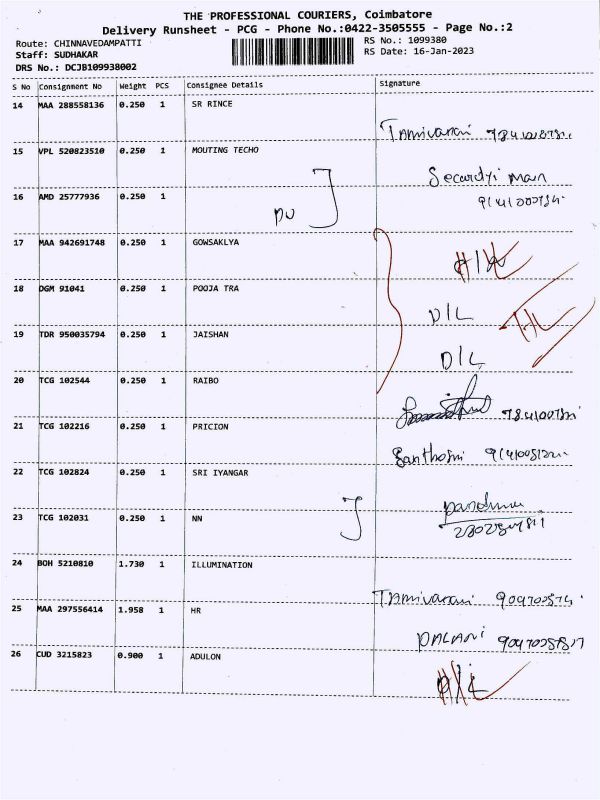 THE PROFESSIONAL COURIERS, Coimbatore
Delivery Runsheet - PCG - Phone No.:0422-3505555 - Page No.:2
Route: CHINNAVEDAMPATTI
RS No.: 1099380
Staff: SUDHAKAR
RS Date: 16-Jan-2023
DRS No.: DCJB109938002
S No Consignment No Weight PCS Consignee Details Signature
14 MAA 288558136 0.250 1 SR RINCE
Tamivarani
15 VPL 520823510 0.250 1 MOUTING TECHO
16 AMD 25777936 0.250 1
17 MAA 942691748 0.250 1 GOWSAKLYA
18 DGM 91041 0.250 1 POOJA TRA
D/L
19 TDR 950035794 0.250 1 JAISHAN
D/L
20 TCG 102544 0.250 1 RAIBO
21 TCG 102216 0.250 1 PRICION
22 TCG 102824 0.250 1 SRI IYANGAR
23 TCG 102031 0.250 1 NN
24 BOH 5210810 1.730 1 ILLUMINATION
Tamivarani
25 MAA 297556414 1.958 1 HR
PALANi
26 CUD 3215823 0.900 1 ADULON